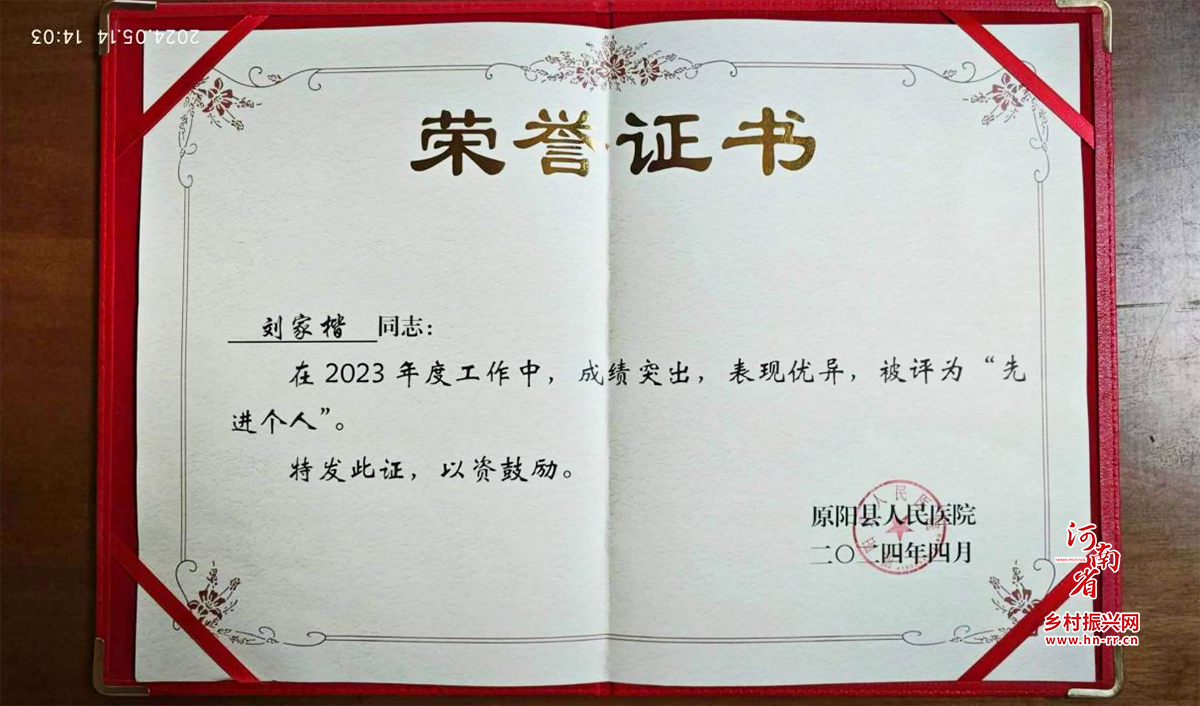 2024.05.14 14:03
荣誉证书
刘家楷 同志：
在2023年度工作中，成绩突出，表现优异，被评为“先
进个人”。
特发此证，以资鼓励。
原阳县人民医院
二〇二四年四月
河南省
乡村振兴网
www.hn-rr.cn